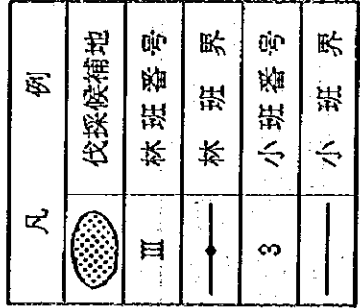 凡例
伐採候補地
Ⅲ 林班番号
林班界
3 小班番号
小班界